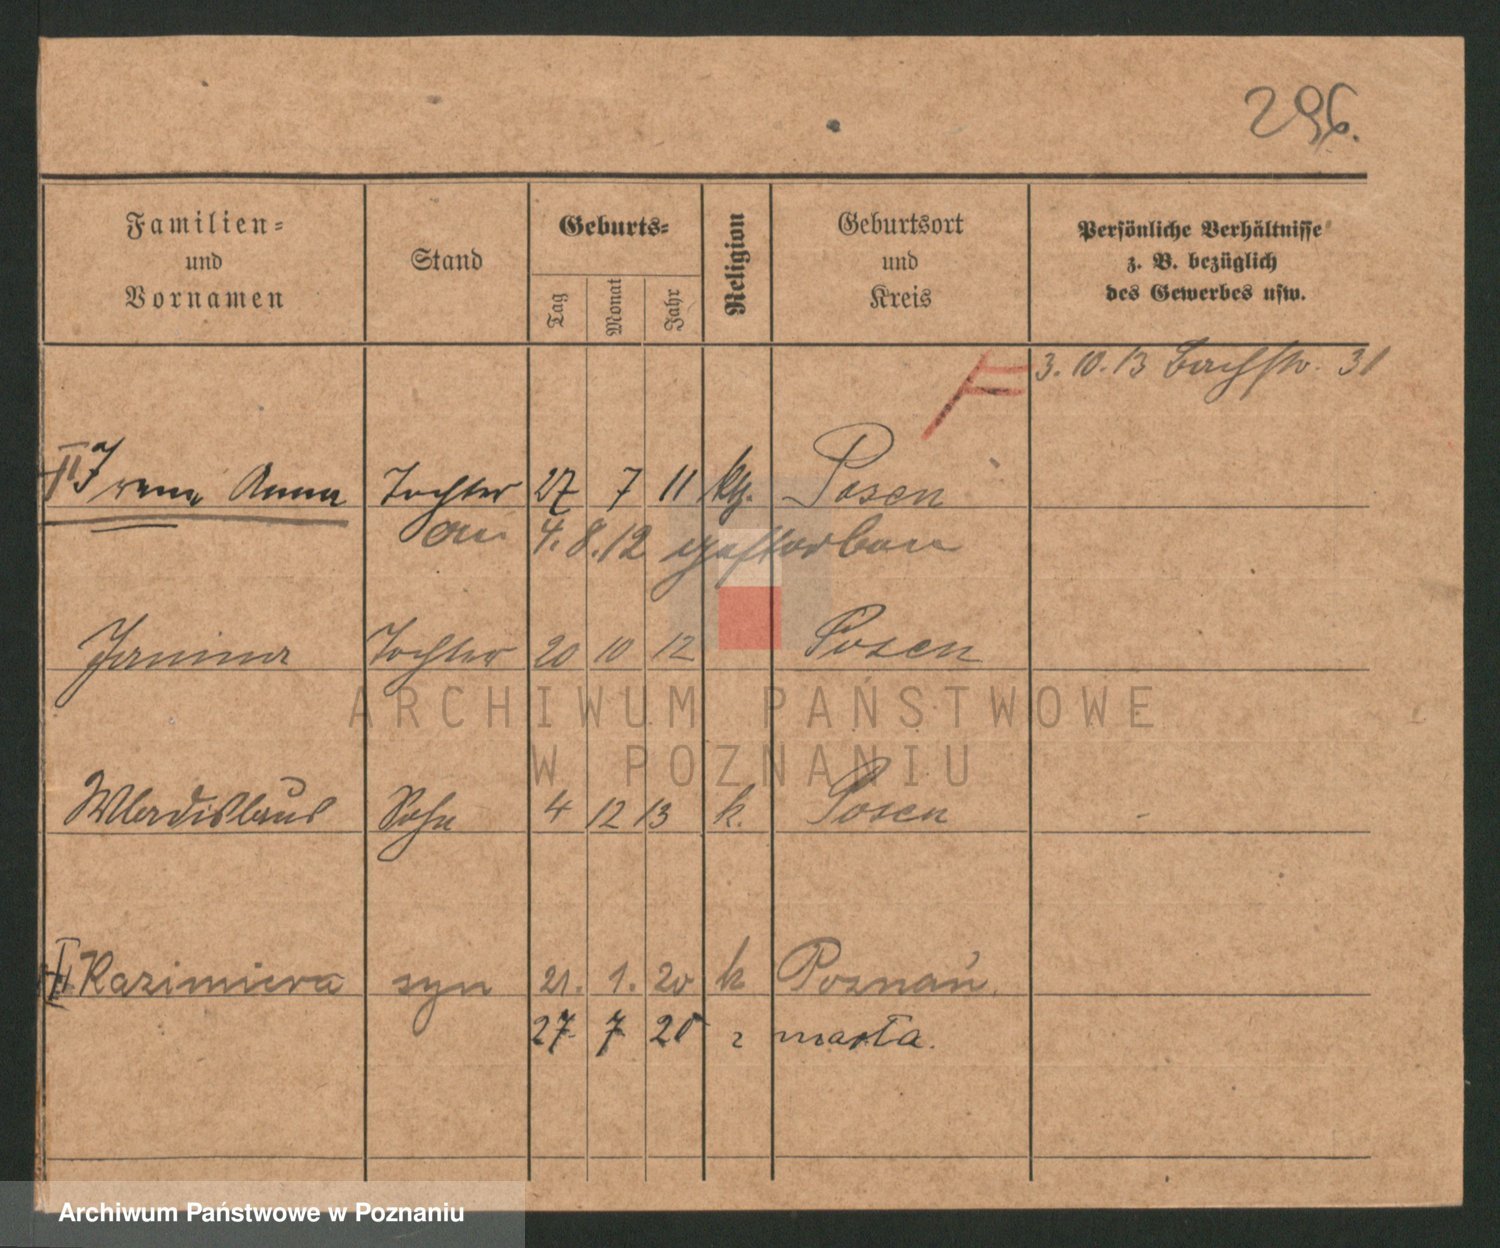 296.
Familien-
und
Vornamen
Stand
Geburts-
Tag
Monat
Jahr
Religion
Geburtsort
und
Kreis
Persönliche Verhältnisse
z. B. bezüglich
des Gewerbes usw.
3. 10. 13 Bachstr. 31
Irene Anna Tochter 27 7 11 kth. Posen
am 4. 8. 12 gestorben
Janina Tochter 20 10 12 Posen
Wladislaus Sohn 4 12 13 k. Posen
Kazimiera syn 21. 1. 20 k Poznań.
27 7 20 zmarła.
ARCHIWUM PAŃSTWOWE
W POZNANIU
Archiwum Państwowe w Poznaniu